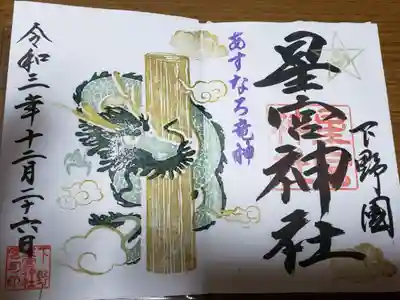 下野國
星宮神社
あすなろ竜神
令和三年十二月二十六日